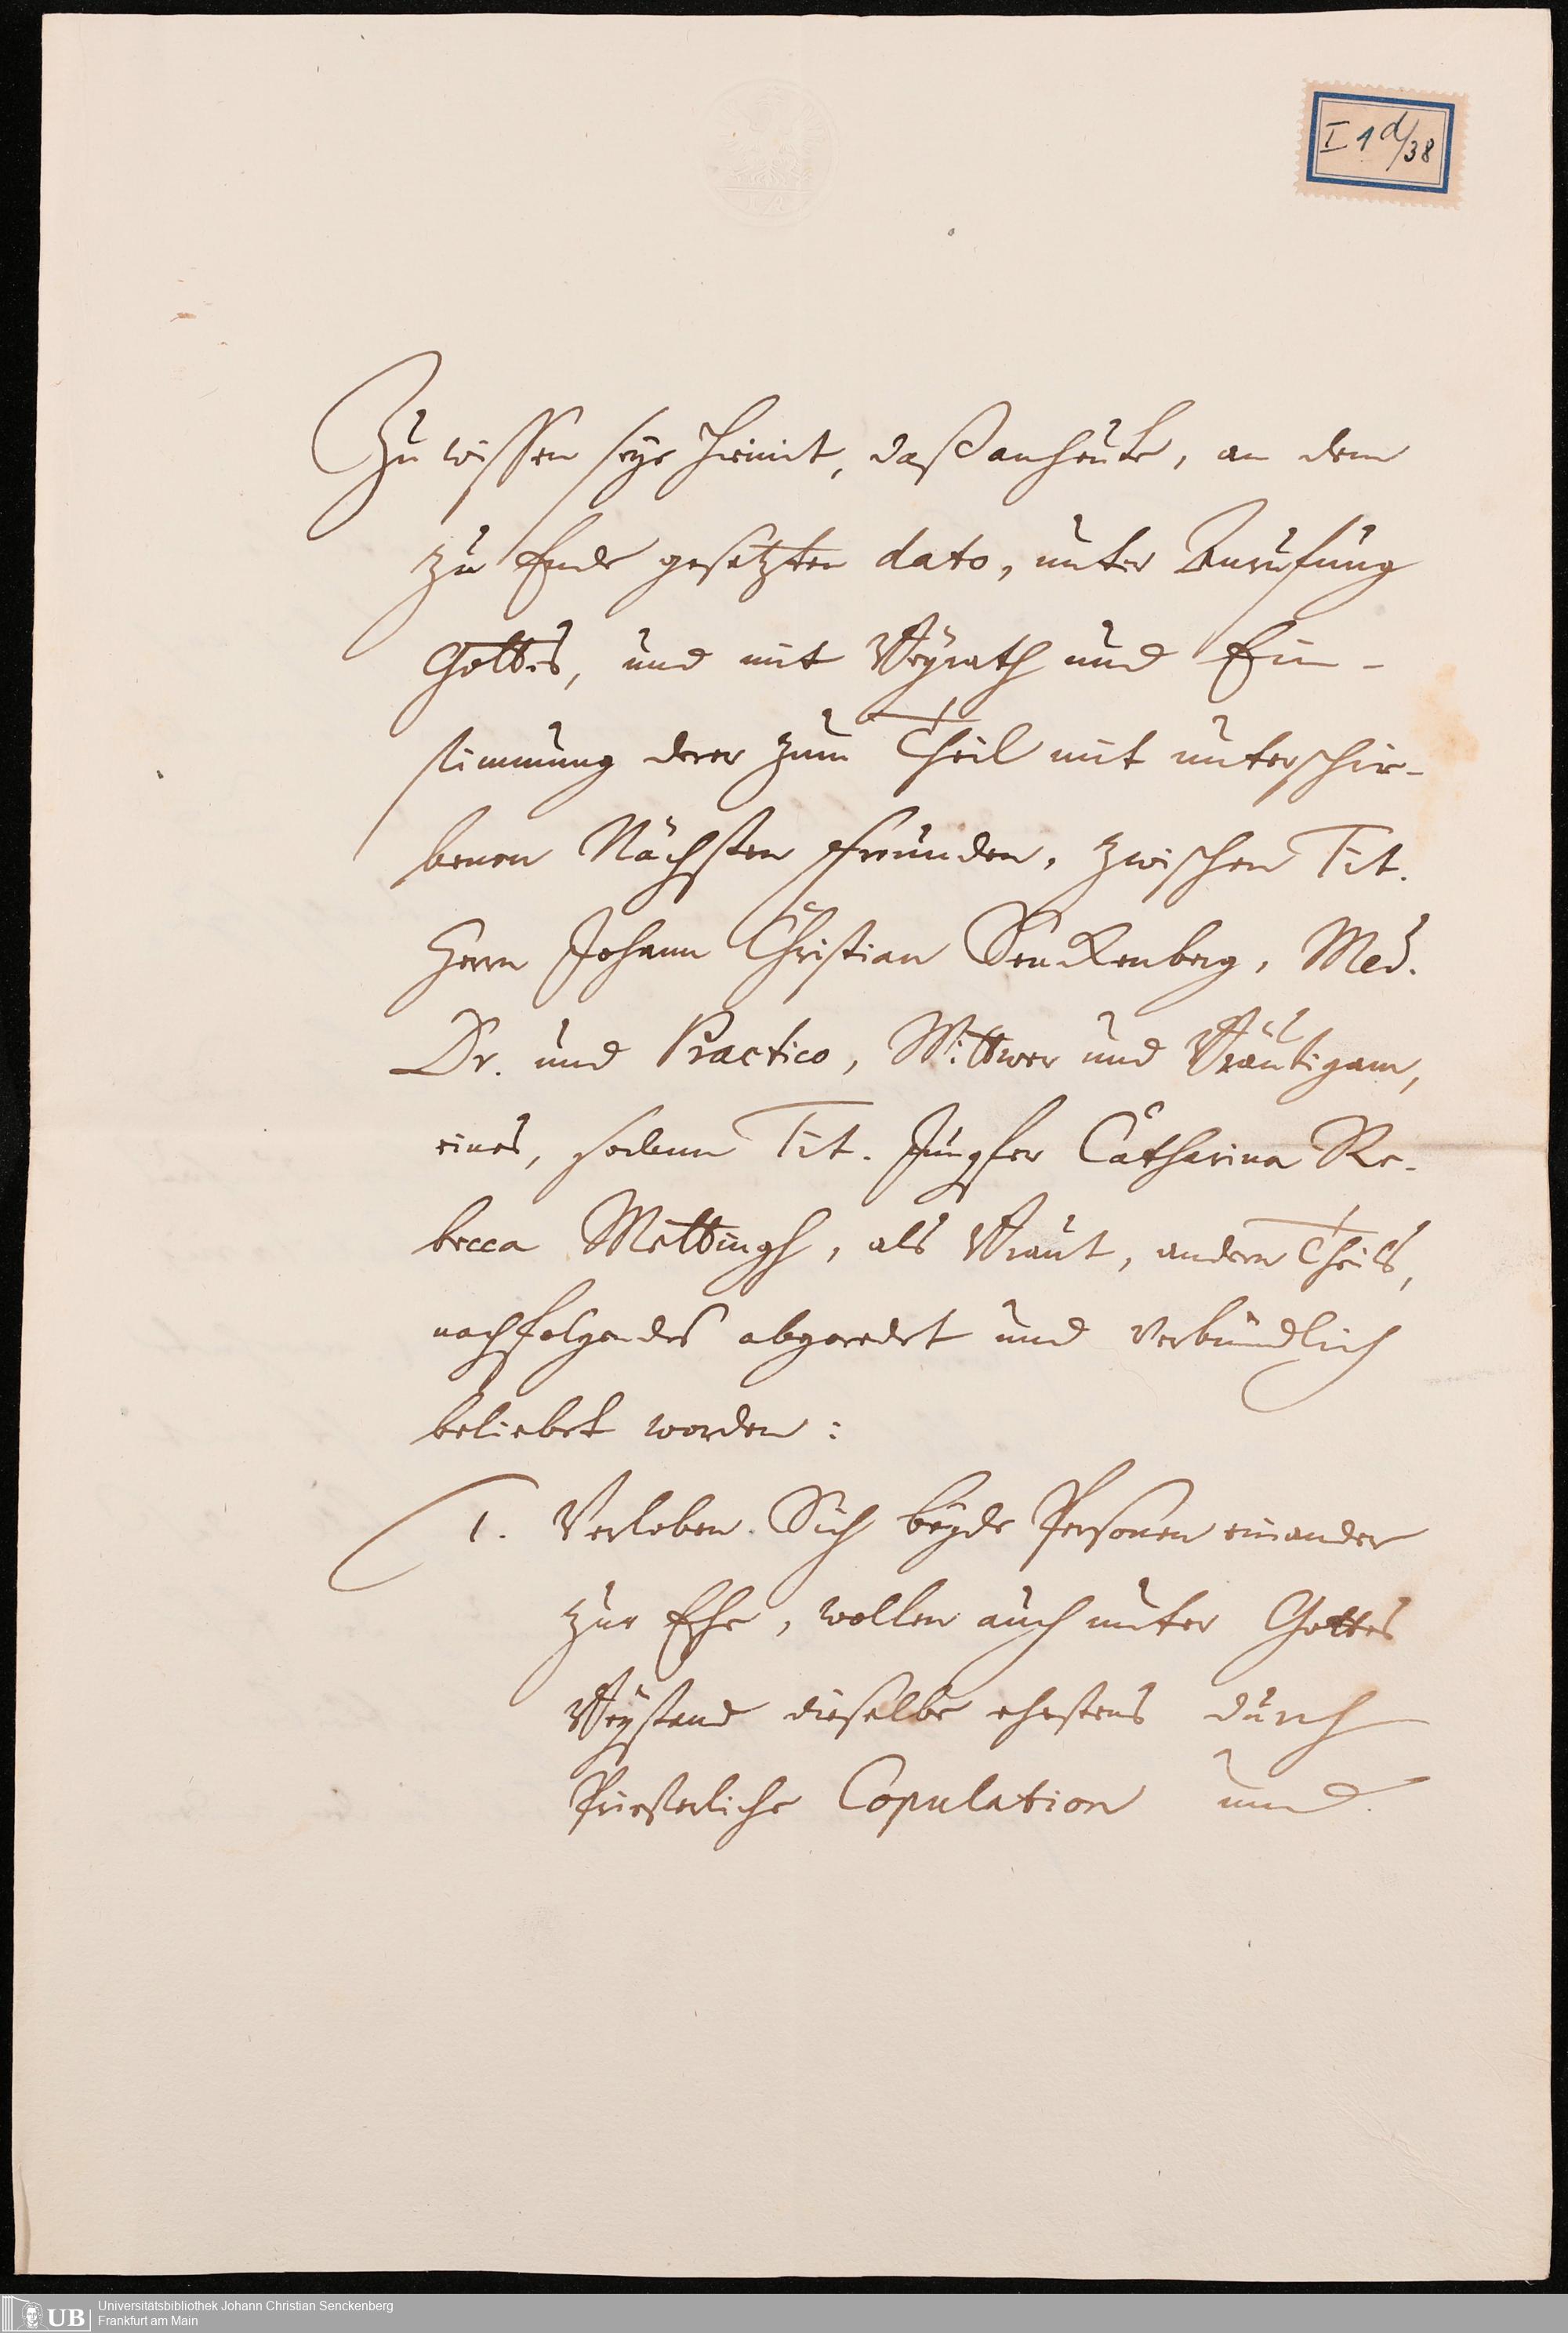 I 1 d/38
Zu wissen seye hiemit, daß anheute, an dem
zu Ende gesetzten dato, unter Anrufung
Gottes, und mit Beyrath und Ein-
stimmung derer zum Theil mit unterschrie-
benen Nächsten Freunden, zwischen Tit.
Herrn Johann Christian Senckenberg, Med.
Dr. und Practico, Wittwer und Bräutigam,
eines, sodann Tit. Jungfer Catharina Re-
becca Mettingh, als Braut, andern Theils,
nachfolgendes abgeredet und verbündlich
beliebet worden:
1. Verloben Sich beyde Personen einander
zur Ehe, wollen auch unter Gottes
Beystand dieselbe ehestens durch
Priesterliche Copulation und
UB Universitätsbibliothek Johann Christian Senckenberg
Frankfurt am Main